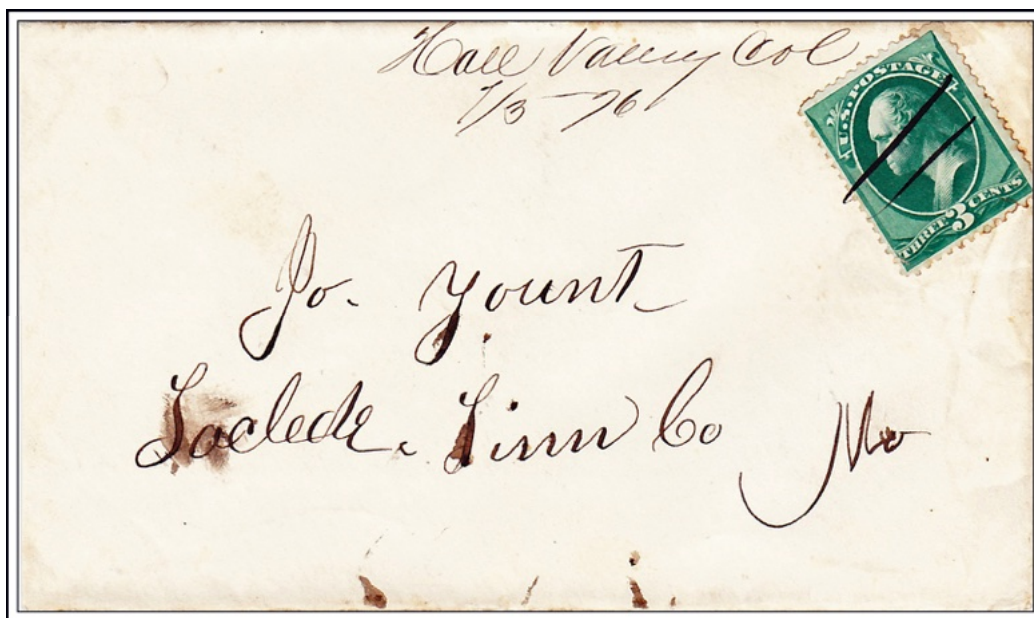 Hall Valley Col
7/3 - 76
U.S. POSTAGE
THREE 3 CENTS
Jo. Yount
Laclede. Linn Co Mo